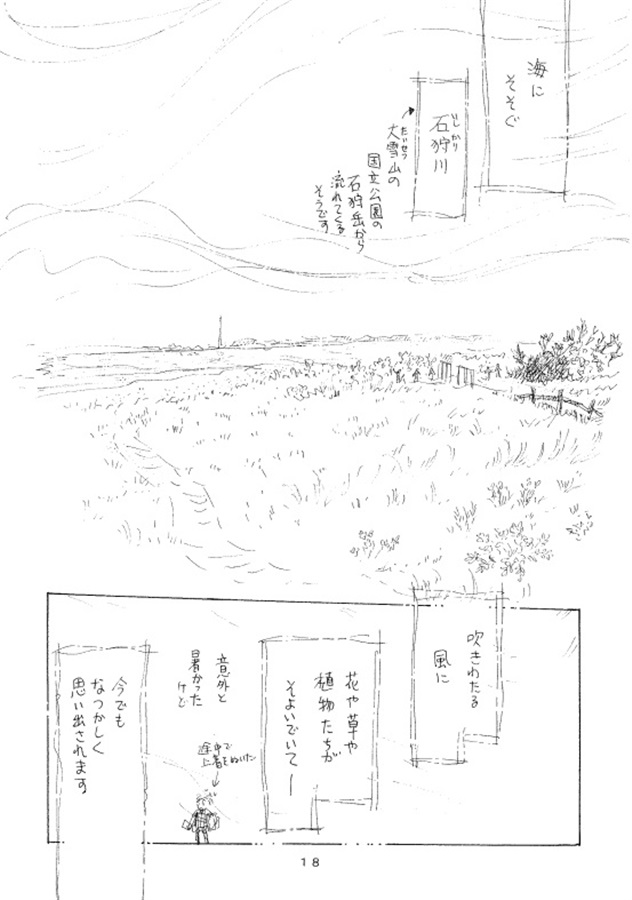 海に
そそぐ
いしかり
石狩川
たいせつ
大雪山の
国立公園の
石狩岳から
流れてくる
そうです
吹きわたる
風に
花や草や
植物たちが
そよいでいてー
意外と
暑かった
けど
途中で
上着をぬいだ
今でも
なつかしく
思い出されます
18